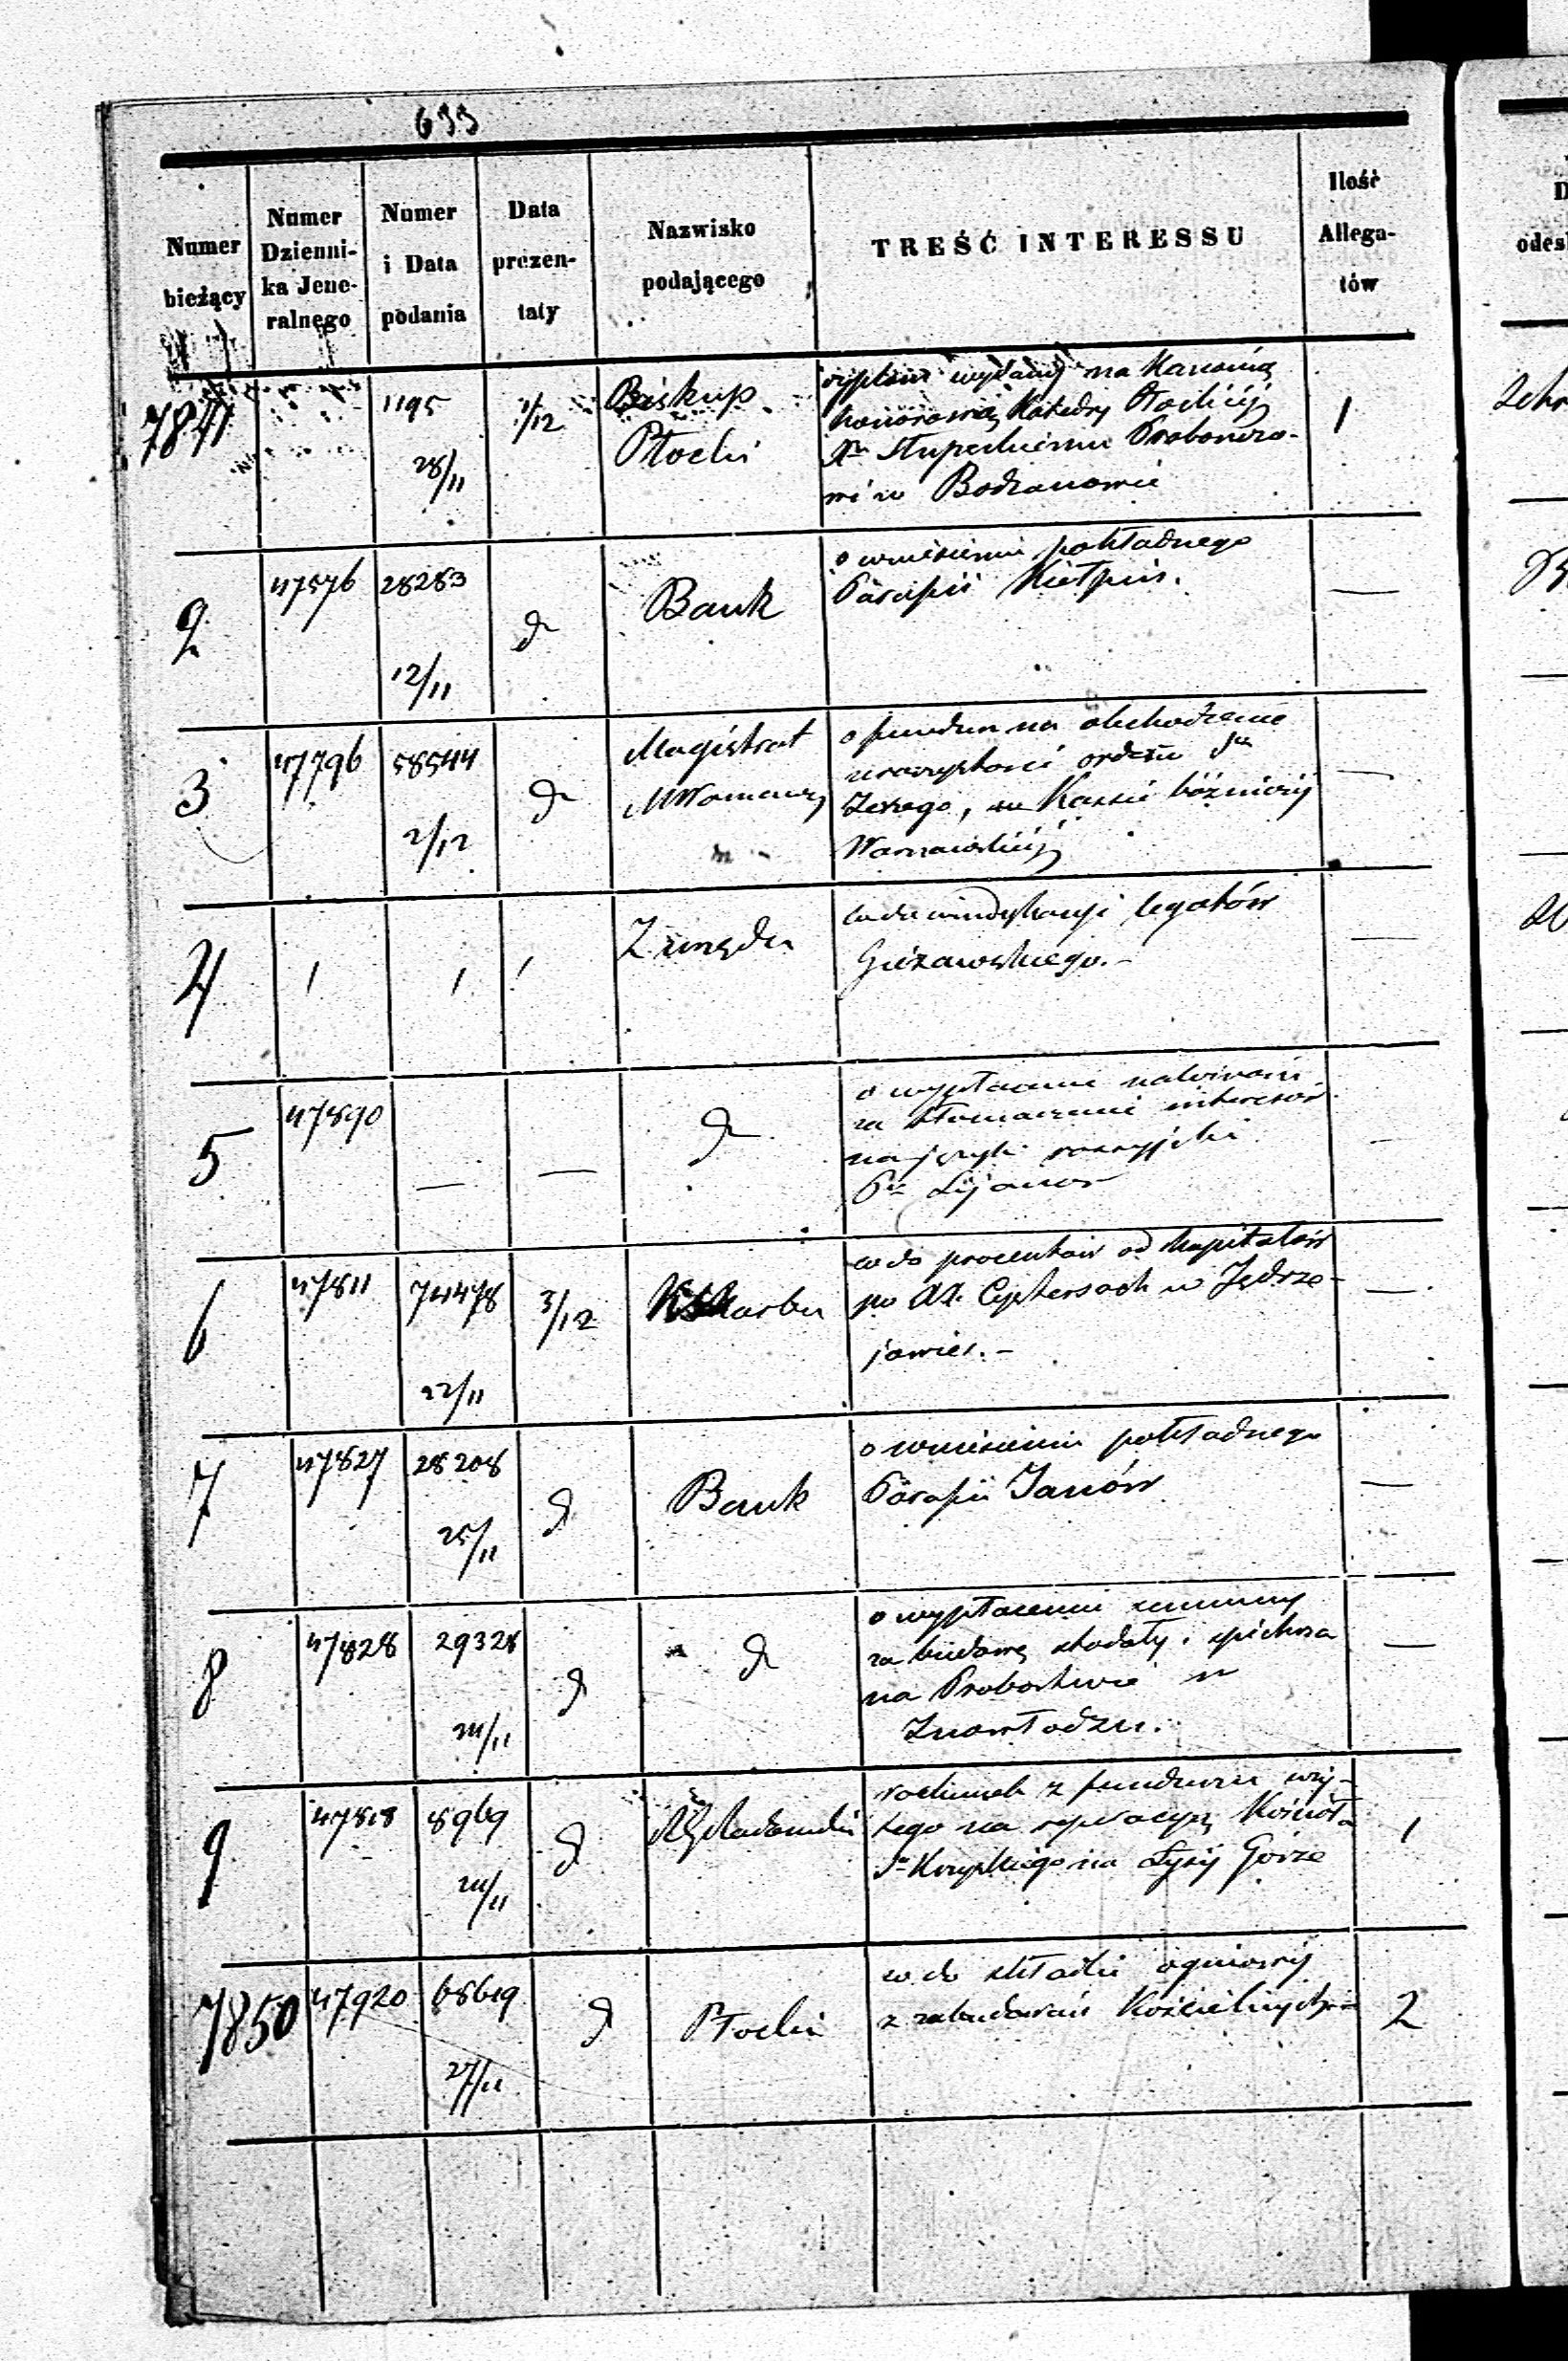 633
Numer bieżący
Numer Dzienni- ka Jene- ralnego
Numer i Data podania
Data prezen- taty
Nazwisko podającego
TREŚĆ INTERESSU
Ilość Allega- tów
7841
1195
28/11
1/12
Biskup
Płocki
wydany na Kanonią
honorową Katedry Płockiéj
Słupeckiemu Proboszczo-
wi w Bodzanowie
1
2
47576
28283
12/11
d
Bank
o wniesieniu pokładnego
Parafii Kiełpin.
—
3
47796
58544
2/12
d
Magistrat
M Warszawy
o fundusz na obchodzenie
uroczystości orderu Sgo
Jerzego, w Kassie bóźniczéj
Warszawskiéj
—
4
/
/
/
Z urzędu
co do windykacyi legatów
Giżawskiego.-
—
5
47890
—
—
d
o wypłacenie należności
za tłomaczenie interesów
na język rossyjski
—
6
47811
74478
22/11
3/12
KSkarbu
co do procentów od kapitałów
po XX. Cystersach w Jędrze-
jowie.-
—
7
47827
28208
25/11
d
Bank
o wniesieniu pokładnego
Parafii Janów
—
8
47828
29328
24/11
d
d
o wypłaceniu summy
za budowę stodoły i spichrza
na Probostwie w
Inowłodzu.
—
9
47818
8969
24/11
d
RGRadomski
rachunek z funduszu wzię-
tego na reperacyę Kościoła
Sgo Krzyskiego na Łyséj Górze
1
7850
47920
68619
27/11
d
Płocki
co do składki ogniowéj
z zabudowań Kościelnych
2